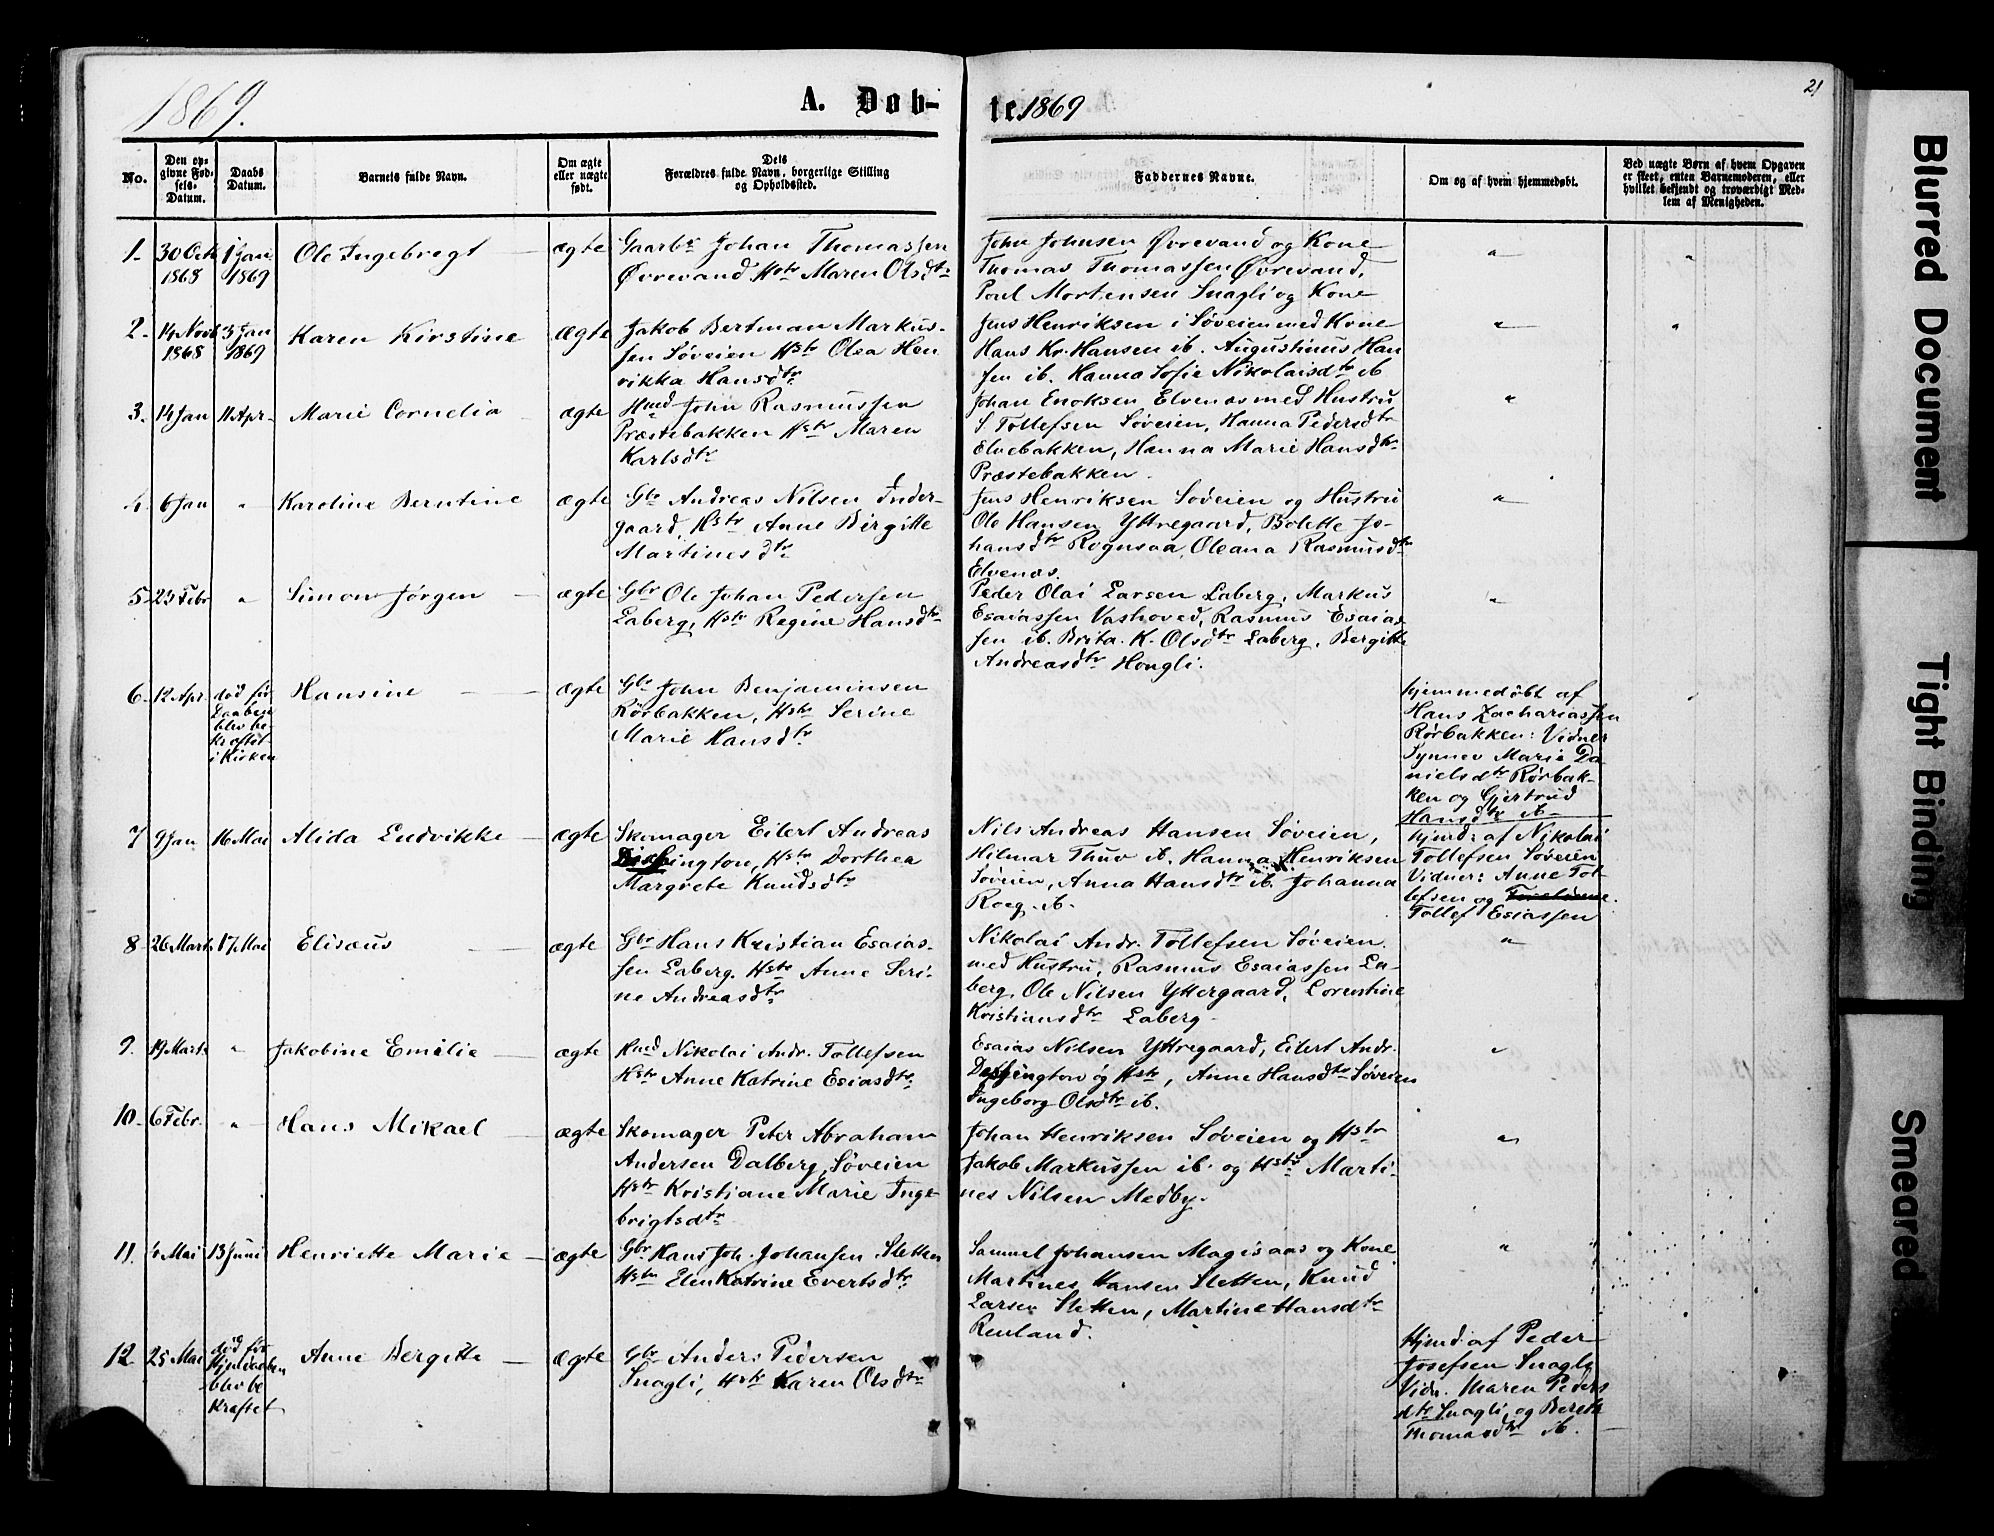 1869.
A. Døb-
te. 1869
21
No.
Den op-
givne Fød-
sels-
Datum.
Daabs
Datum.
Barnets fulde Navn.
Om ægte
eller uægte
født.
Dets
Forældres fulde Navn, borgerlige Stilling
og Opholdssted.
Faddernes Navne.
Om og af hvem hjemmedøbt.
Ved uægte Børn af hvem Opgaven
er skeet, enten Barnemoderen, eller
hvilket bekjendt og troværdigt Med-
lem af Menigheden.
1-
30 Oct
1868
1 Jan
1869
Ole Ingebregt
ægte
Gaarbr Johan Thomassen
Øvrevand Hstr Maren Olsdtr
John Johnsen Øvrevand og Kone
Thomas Thomassen Øvrevand,
Poul Mortensen Snagli og Kone
"
"
2-
14 Novb
1868
3 Jan
1869
Karen Kirstine
ægte
Jakob Bertman Markus-
sen Søveien Hstr Olea Hen
rikka Hansdtr
Jens Henriksen i Søveien med Kone
Hans Kr. Hansen ib. Augustinus Han
sen ib. Hanna Sofie Nikolaisdtr ib
"
"
3.
14 Jan
11 Apr-
Marie Cornelia
ægte
Hmd John Rasmussen
Præstebakken Hstr Maren
Karlsdtr
Johan Enoksen Elvenæs med Hustru
S Tollefsen Søveien, Hanna Pedersdtr
Elvebakken, Hanna Marie Hansdtr
Præstebakken.
"
4.
6 Jan
"
Karoline Berntine
ægte
Gbr Andreas Nilsen Inder-
gaard, Hstr Anne Birgitte
Martinesdtr
Jens Henriksen Søveien og Hustru
Ole Hansen Yttregaard, Bolette Jo-
hansdtr Rognsaa, Oleana Rasmusdtr
Elvenæs.
"
5-
23 Febr
"
Simon Jørgen
ægte
Gbr Ole Johan Pedersen
Laberg, Hstr Regine Hansdtr
Peder Olai Larsen Laberg, Markus
Esaiassen Vashoved, Rasmus Esaias
sen ib. Brita K. Olsdtr Laberg, Bergitte
Andreasdtr Hongli.
"
6-
12 Apr.
død før
Daaben
blev be-
kræftet
i Kirken
Hansine
ægte
Gbr John Benjaminsen
Rørbakken, Hstr Serine
Marie Hansdtr
hjemmedøbt af
Hans Zachariassen
Rørbakken: Vidner
Synnev Marie Da
nielsdtr Rørbak-
ken og Gjertrud
Hansdtr ib-
7
9 Jan
16 Mai
Alida Ludvikke
ægte
Skomager Eilert Andreas
Dessington, Hstr Dorthea
Margrete Knudsdtr
Nils Andreas Hansen Søveien,
Hilmar Thuv ib. Hanna Henriksen
Søveien, Anna Hansdtr ib. Johanna
Roeg. ib.
hjmd: af Nikolai
Tollefsen Søveien
Vidner: Anne Tol-
lefsen og
Tollef Esiassen
8
26 Marts
17 Mai
Elisæus
ægte
Gbr Hans Kristian Esaias-
sen Laberg. Hstr Anne Seri-
ne Andreasdtr
Nikolai Andr. Tollefsen Søveien
med Hustru, Rasmus Esaiassen La-
berg, Ole Nilsen Yttergaard, Lorentine
Kristiansdtr Laberg-
"
9.
19 Marts
"
Jakobine Emilie
ægte
Hmd Nikolai Andr. Tollefsen
Hstr Anne Katrine Esiasdtr
Esaias Nilsen Yttregaard, Eilert Andr.
Dessington og Hstr, Anne Hansdtr Søveien
Ingeborg Olsdtr ib.
"
10-
6 Febr.
"
Hans Mikael
ægte
Skomager Peter Abraham
Andersen Dalberg, Søveien
Hstr Kristiane Marie Inge-
brigtsdtr
Johan Henriksen Søveien og Hstr
Jakob Markussen ib. og Hstr Marti-
nes Nilsen Medby.
"
11.
4 Mai
13 Juni
Henriette Marie
ægte
Gbr Hans Joh. Johansen Sletten
Hstr Elen Katrine Evertsdtr
Samuel Johansen Magisaas og Kone
Martines Hansen Sletten, Knud
Larsen Sletten, Martine Hansdtr
Renland.
"
"
12
25 Mai
død før
Hjmdaaben
blev be
kræftet
Anne Bergitte
ægte
Gbr Anders Pedersen
Snagli, Hstr Karen Olsdtr
Hjmd af Peder
Josefsen Snagly
Vidn. Maren Peders
dtr Snagli og Bereth
Thomasdtr ib.
Blurred Document
Tight Binding
Smeared